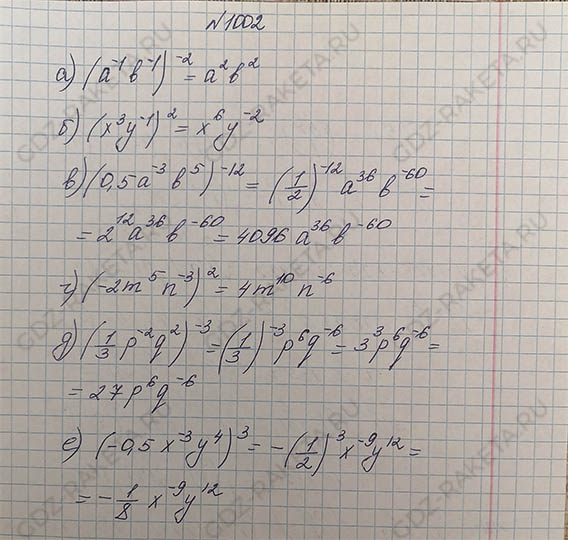 №1002
а) (a⁻¹b⁻¹)⁻² = a²b²
б) (x³y⁻¹)² = x⁶y⁻²
в) (0,5a⁻³b⁵)⁻¹² = (1/2)⁻¹² a³⁶ b⁻⁶⁰ =
= 2¹²a³⁶b⁻⁶⁰ = 4096 a³⁶ b⁻⁶⁰
г) (-2m⁵n⁻³)² = 4m¹⁰n⁻⁶
д) (1/3 p⁻²q²)⁻³ = (1/3)⁻³p⁶q⁻⁶ = 3³p⁶q⁻⁶ =
= 27p⁶q⁻⁶
е) (-0,5x⁻³y⁴)³ = -(1/2)³x⁻⁹y¹² =
= -1/8 x⁻⁹y¹²
GDZ-RAKETA.RU